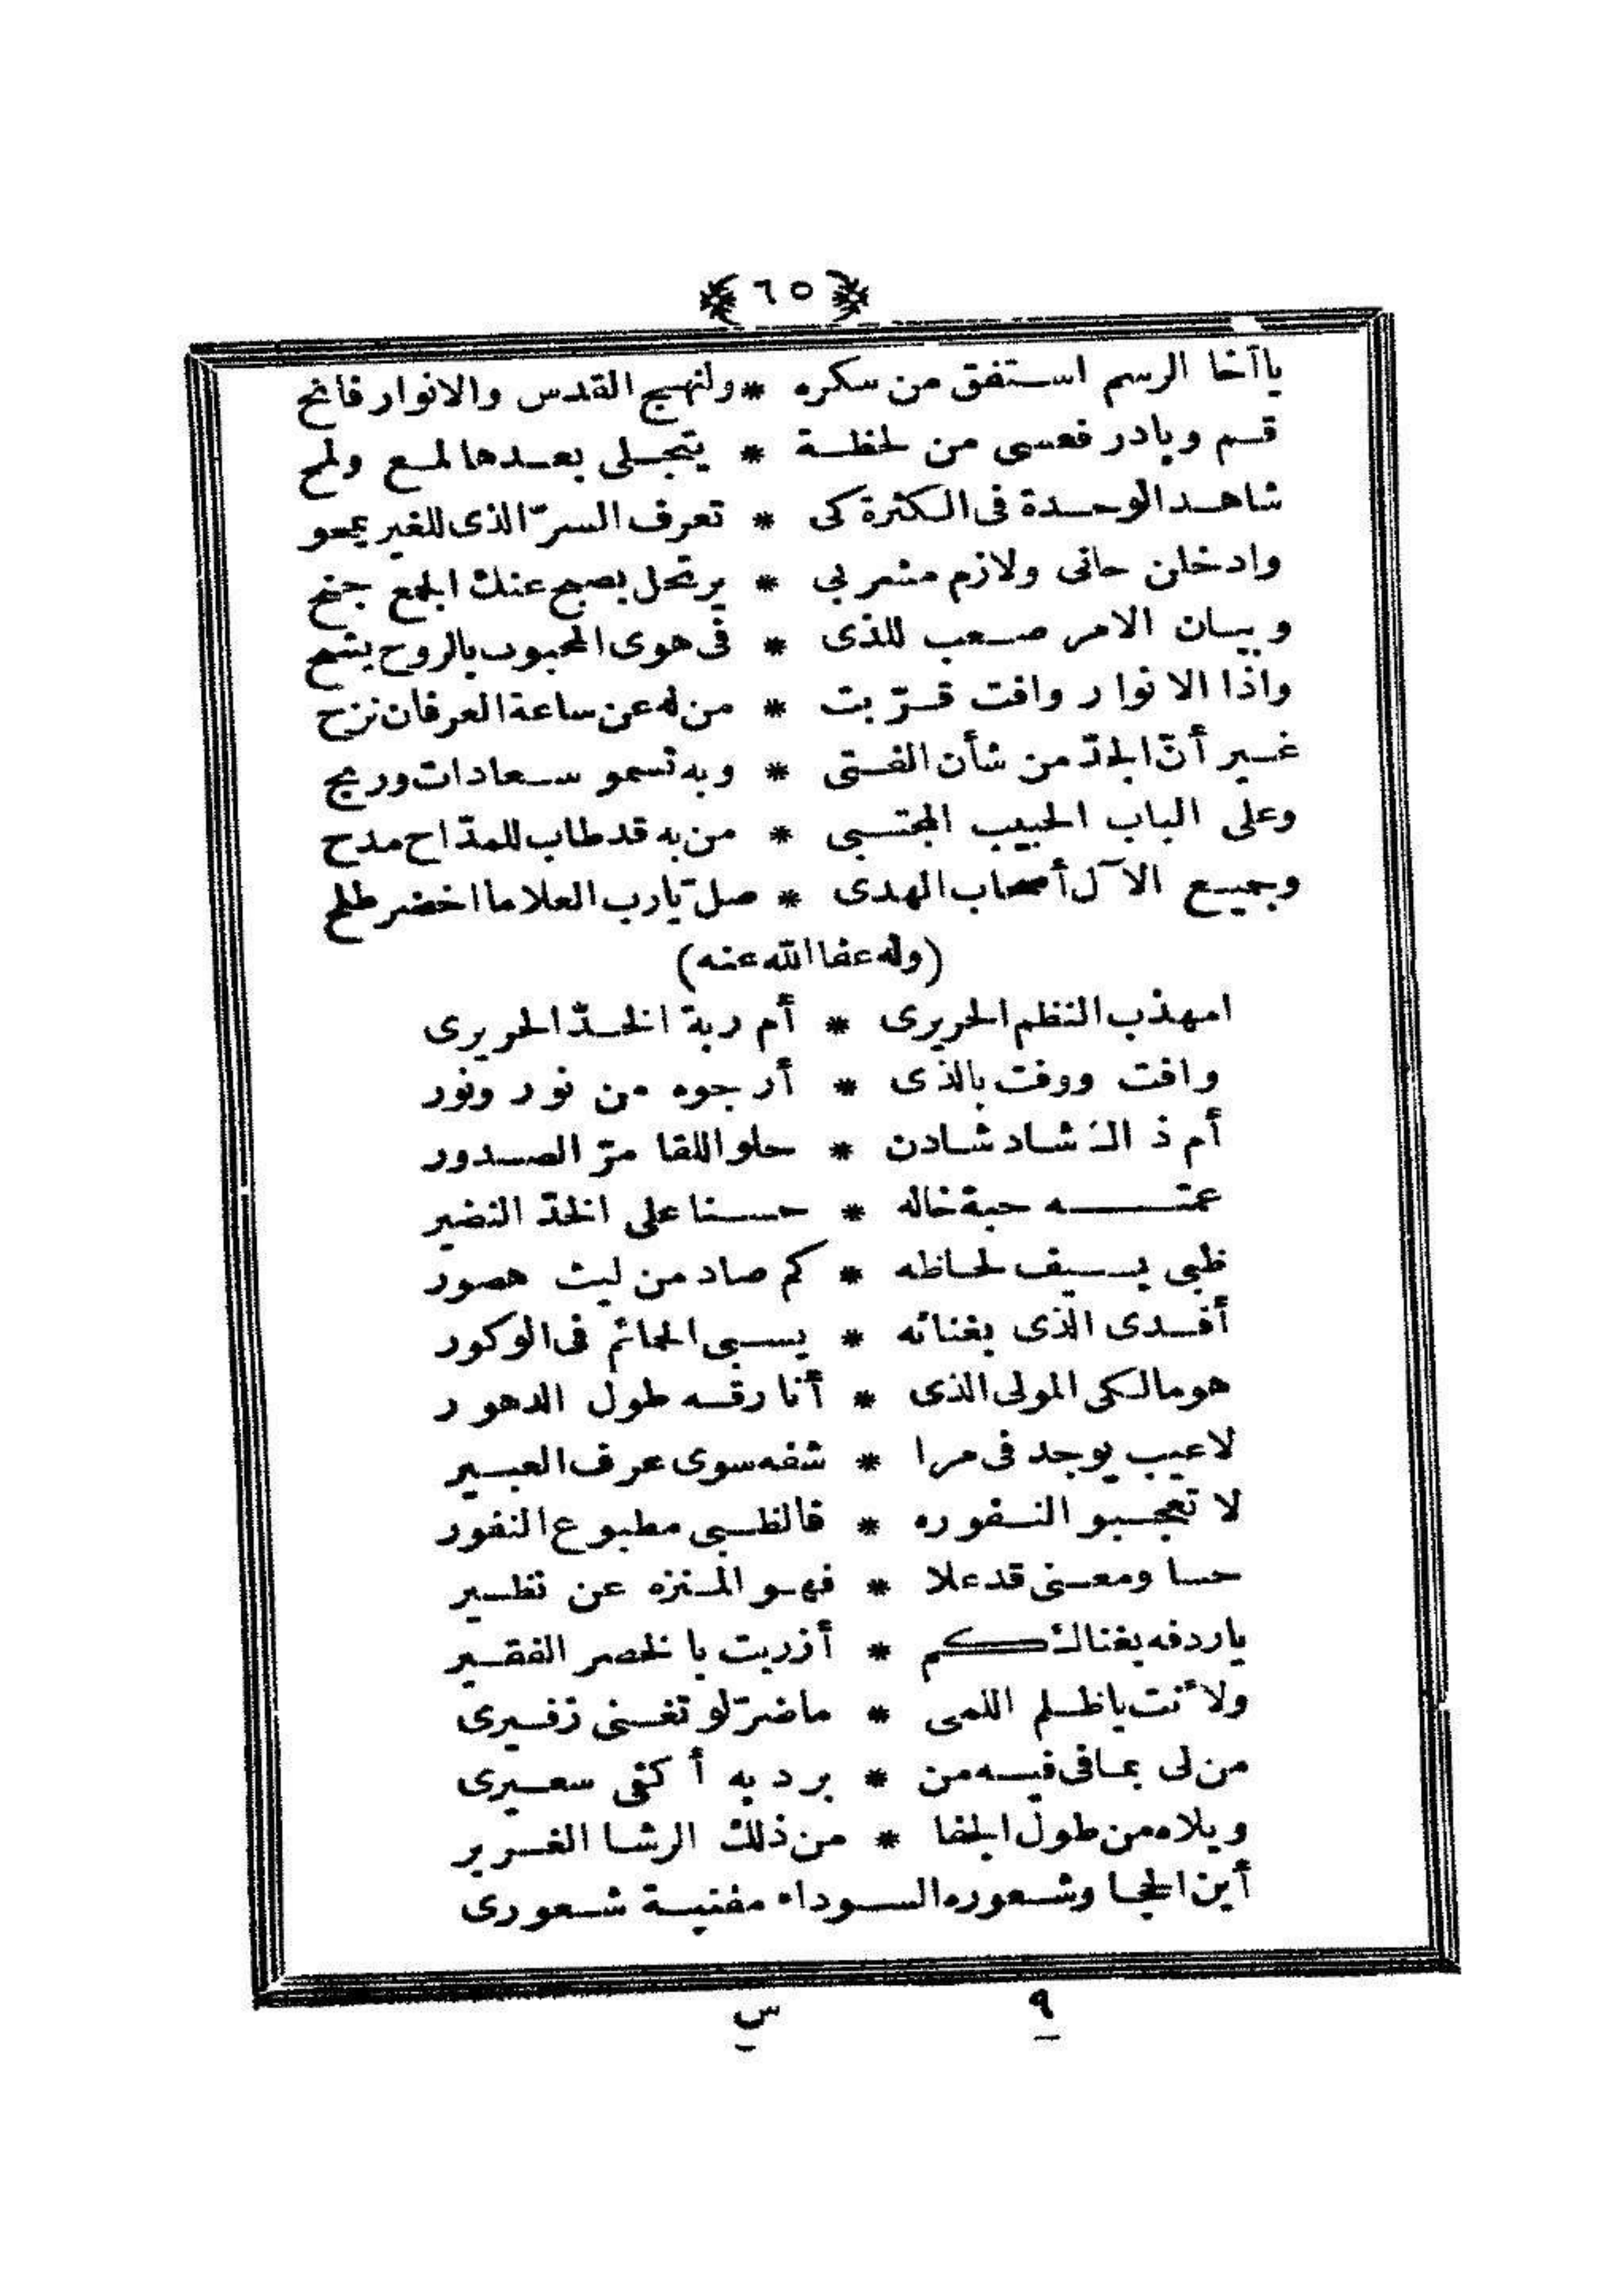 ﴿ ٦٥ ﴾
يا آخا الرسم استفق من سكره * ولنهج القدس والانوار فانح
قم وبادر فعسى من لحظة * يتجلى بعدها لمع ولمح
شاهد الوحدة فى الكثرة كى * تعرف السرّ الذى للغير يمحو
وادخلن حانى ولازم مشربى * يرتحل بصبح عنك الجمع جنح
وبيان الامر صعب للذى * فى هوى المحبوب بالروح يشح
واذا الانوار وافت قرّبت * من له عن ساعة العرفان نزح
غير أنّ الجدّ من شأن الفتى * وبه تسمو سعادات وربح
وعلى الباب الحبيب المجتبى * من به قد طاب للمدّاح مدح
وجميع الآل أصحاب الهدى * صلّ يارب العلا ما اخضر طلح
(وله عفا الله عنه)
امهذب النظم الحريرى * أم ربة الخدّ الحريرى
وافت ووفت بالذى * أرجوه من نور ونور
أم ذاك شاد شادن * حلو اللقا مرّ الصدور
عمته حبة خاله * حسنا على الخدّ النضير
ظبى بسيف لحاظه * كم صاد من ليث هصور
أفدى الذى بغنائه * يسبى الحمائم فى الوكور
هو مالكى المولى الذى * أنا رقه طول الدهور
لا عيب يوجد فى مرا * شفه سوى عرف العبير
لا تعجبوا لنفوره * فالظبى مطبوع النفور
حسا ومعنى قد علا * فهو المنزه عن نظير
يا ردفه بغناك كم * أزريت بالخصر الفقير
ولأنت يا ظلم اللمى * ما ضرّ لو تغنى زفيرى
من لى بما فى فيه من * برد به أكفى سعيرى
ويلاه من طول الجفا * من ذلك الرشا الغرير
أين الحجا وشعوره السوداء مفنية شعورى
٩ س